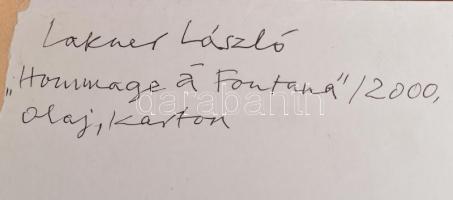 Lakner László
„Hommage á Fontana" /2000,
olaj, karton
darabanth